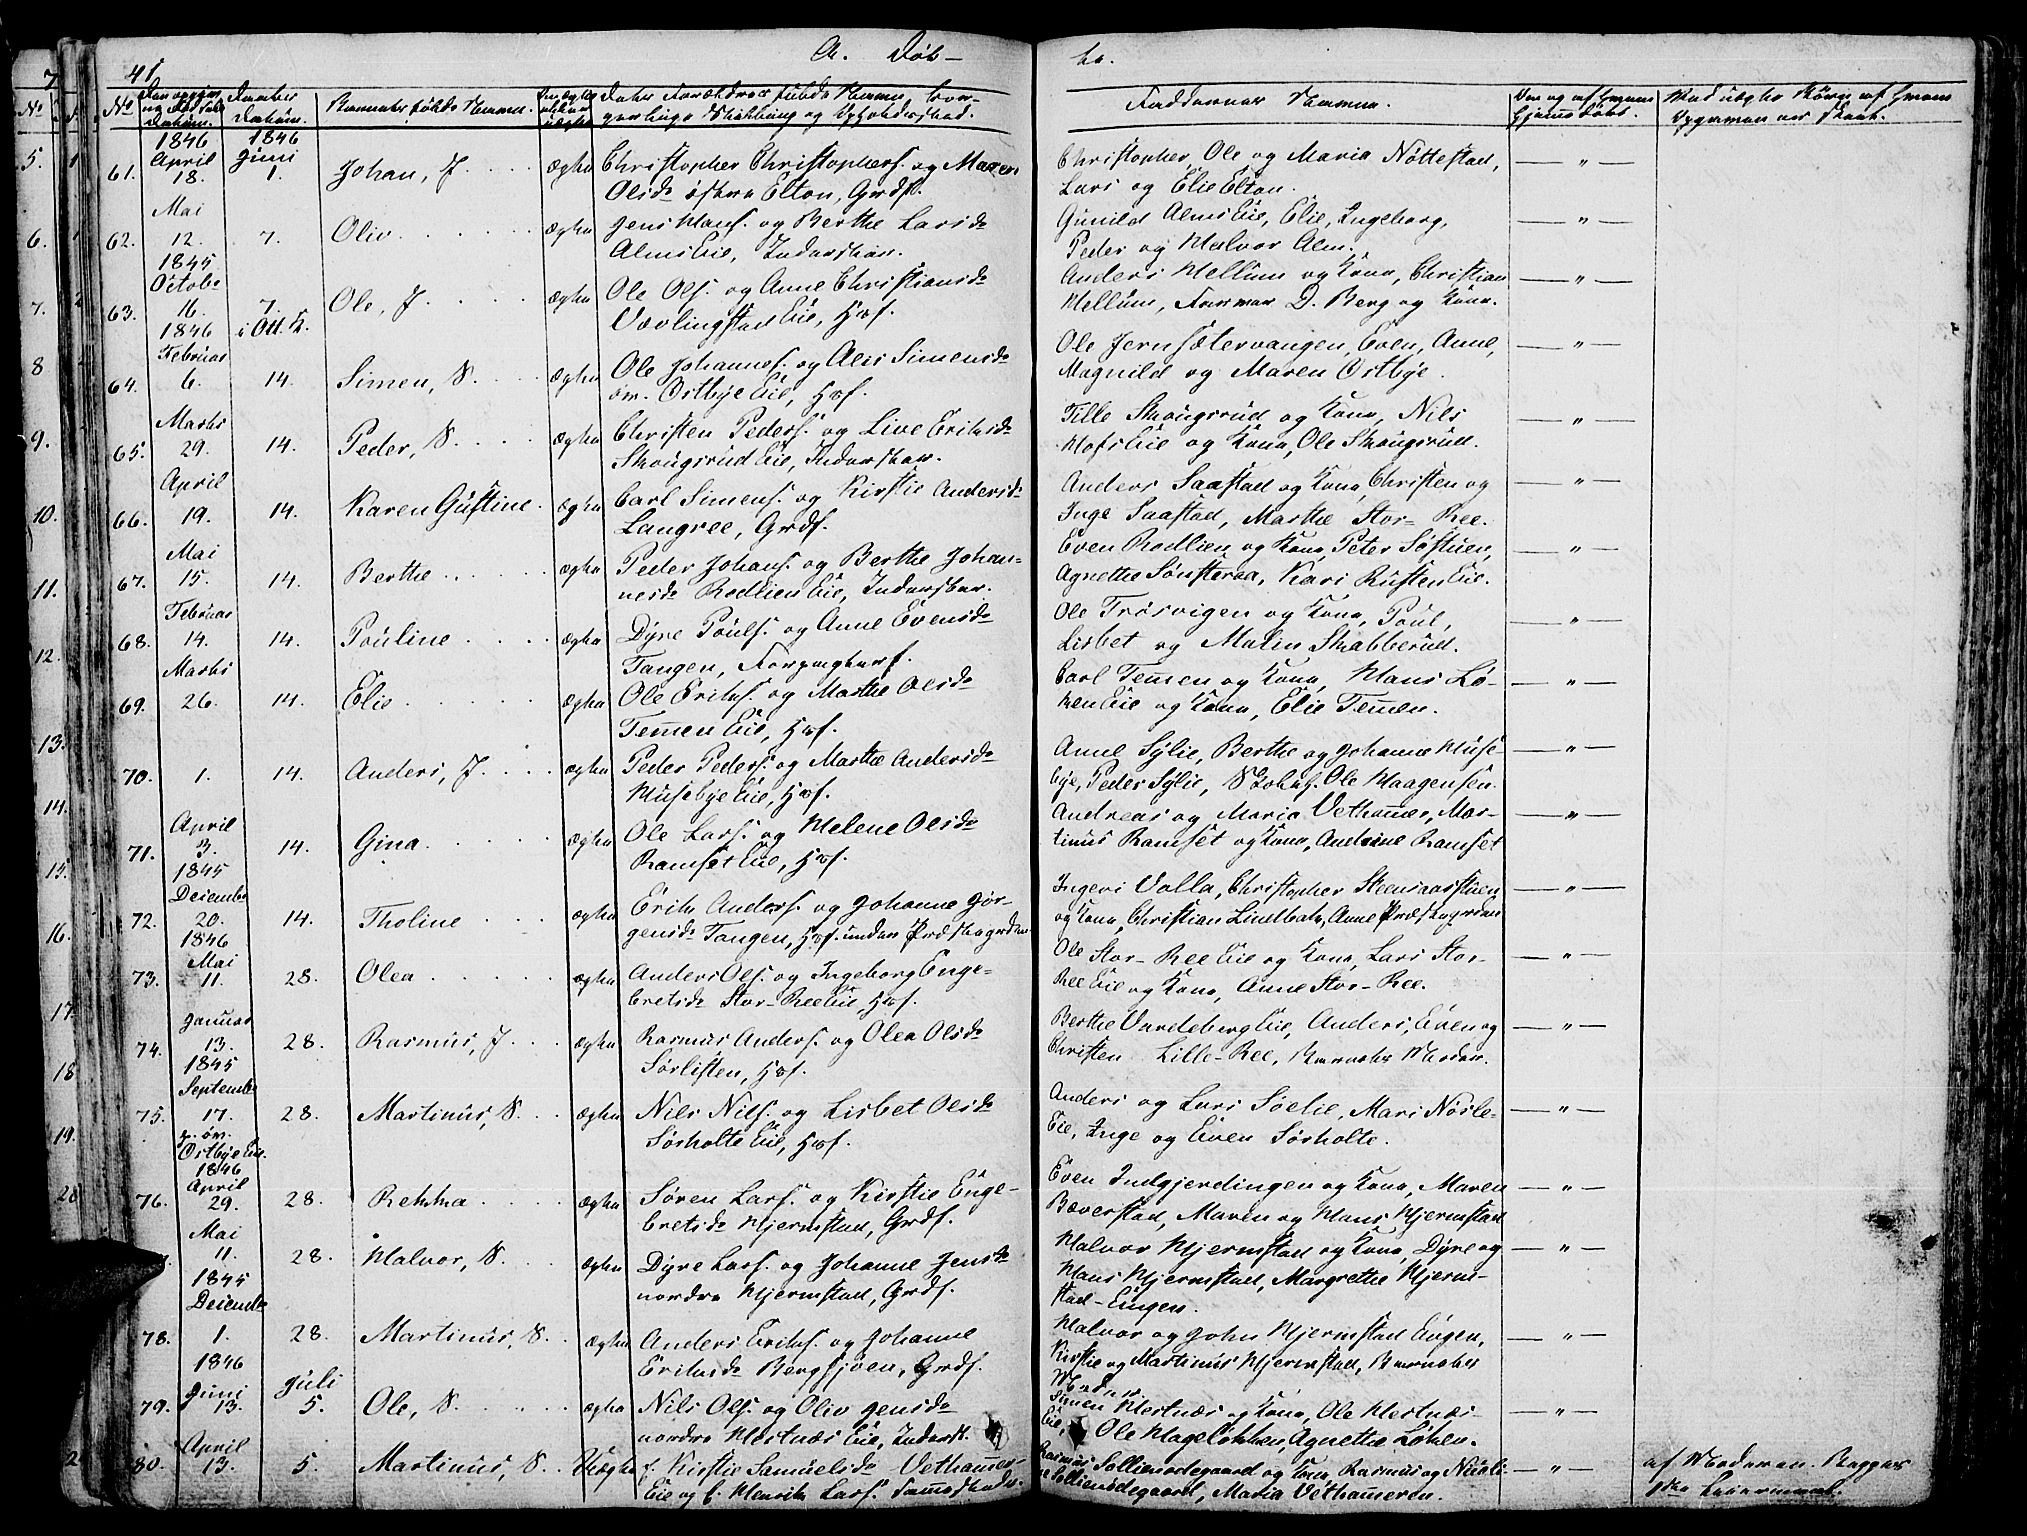 41
A. Døb-
te.
No
Barnets fulde Navn.
Faddernes Navne.
1846 1846
April Juni
61. 18. 1. Johan, J. ægte Christopher Christophers. og Maren
Olsd. østre Elton, Grdf.
Christopher, Ole og Maria Nöttestad,
Lars og Elie Elton.
Mai
62. 12. 7. Oliv. ægte Jens Hans. og Berthe Larsd.
Alms Eie, Inderster.
Gunild Alms Eie, Elie, Ingeborg,
Peder og Halvor Alm.
1845
Octobr
63. 16. 7. Ole, J. ægte Ole Ols. og Anne Christiansd.
Vævlingstad Eie, Hf.
Anders Mellum og Kone, Christian
Mellum, Farver D. Berg og Kone.
1846 i Ott. K.
Februar
64. 6. 14. Simen, S. ægte Ole Johannes. og Alis Simensd.
øv. Ostbye Eie, Hf.
Ole Jernsætervangen, Even, Anne,
Magnild og Maren Ostbye.
Marts
65. 29. 14. Peder, S. ægte Christen Peders. og Live Eriksd.
Skougsrud Eie, Inderster.
Tille Skougsrud og Kone, Nils
Hofs Eie og Kone, Ole Skougsrud.
April
66. 19. 14. Karen Gustine. ægte Carl Simens. og Kirstie Andersd.
Langree, Grdf.
Anders Saastad og Kone, Christen og
Inge Saastad, Marthe Stor-Ree.
Mai
67. 15. 14. Berthe. ægte Peder Johans. og Berthe Johan-
nesd. Rodlien Eie, Inderster.
Even Rodlien og Kone, Peter Søstuen,
Agnethe Sønsteraa, Kari Rusten Eie.
Februar
68. 14. 14. Pouline ægte Dyre Pouls. og Anne Evensd.
Tangen, Forpagterf.
Ole Trøsvigen og Kone, Poul,
Lisbet og Malin Skabberud.
Marts
69. 26. 14. Elie ægte Ole Eriks. og Marthe Olsd.
Temen Eie, Hf.
Carl Temen og Kone, Hans Lø-
ken Eie og Kone, Elie Temen.
70. 1. 14. Anders, J. ægte Peder Peders. og Marthe Andersd.
Musebye Eie, Hf.
Anne Sylie, Berthe og Johanne Muse-
bye, Peder Sylie, Ole Haagensen.
April
71. 3. 14. Gina. ægte Ole Lars. og Helene Olsd.
Ramset Eie, Hf.
Andreas og Maria Vethamer, Mar-
tinus Ramset og Kone, Andrine Ramset
1845
Decembr
72. 20. 14. Tholine ægte Erik Anders. og Johanne Jør-
gensd. Tangen, Hf. under Præstegrden
Ingeri Valla, Christopher Steensaasstuen
og Kone, Christian Lindbak, Anne Præstegrden
1846
Mai
73. 11. 28. Olea ægte Anders Ols. og Ingeborg Enge-
bretsd. Stor-Ree Eie, Hf.
Ole Stor-Ree Eie og Kone, Lars Stor-
Ree Eie og Kone, Anne Stor-Ree.
Januar
74. 13. 28. Rasmus, J. ægte Rasmus Anders. og Olea Olsd.
Sørlisten, Hf.
Berthe Vardeberg Eie, Anders, Even og
Christen Lille-Ree, Barnets Moder.
1845
Septembr
75. 17. 28. Martinus, S. ægte Nils Nils. og Lisbet Olsd.
Sørholte Eie, Hf.
Anders og Lars Søelie, Mari Nösle-
Eie, Inge og Even Sørholte.
Ostbye Eie.
1846
April
76. 29. 28. Rekka ægte Søren Lars. og Kirstie Enge-
bretsd. Hjermstad, Grdf.
Even Indgjerdingen og Kone, Maren
Bæverstad, Maren og Hans Hjermstad
Mai
11. 28. Halvor, S. ægte Dyre Lars. og Johanne Jensd.
nordre Hjermstad, Grdf.
Halvor Hjermstad og Kone, Dyre og
Hans Hjermstad, Margrethe Hjerm-
stad-Engen.
1845
Decembr
78. 1. 28. Martinus, S. ægte Anders Eriks. og Johanne
Eriksd. Bergsjøen, Grdf.
Halvor og John Hjermstad Engen,
Kirstie og Martinus Hjermstad, Barnets
Moder.
1846
Juni Juli
79. 13. 5. Ole, S. ægte Nils Ols. og Oliv Jensd.
nordre Hestnæs Eie, Inderst.
Simen Hestnæs og Kone, Ole Hestnæs-
Eie, Ole Hageløkken, Agnethe Løken.
April
80. 13. 5. Martinus, S. Uægte f. Kirstie Samuelsd. Vethamer-
Eie og f. Henrik Lars.
Rasmus Sollienødegaard og Kone, Rasmus og
Sollienødegaard, Maria Vethameren.
af Moderen. Begges